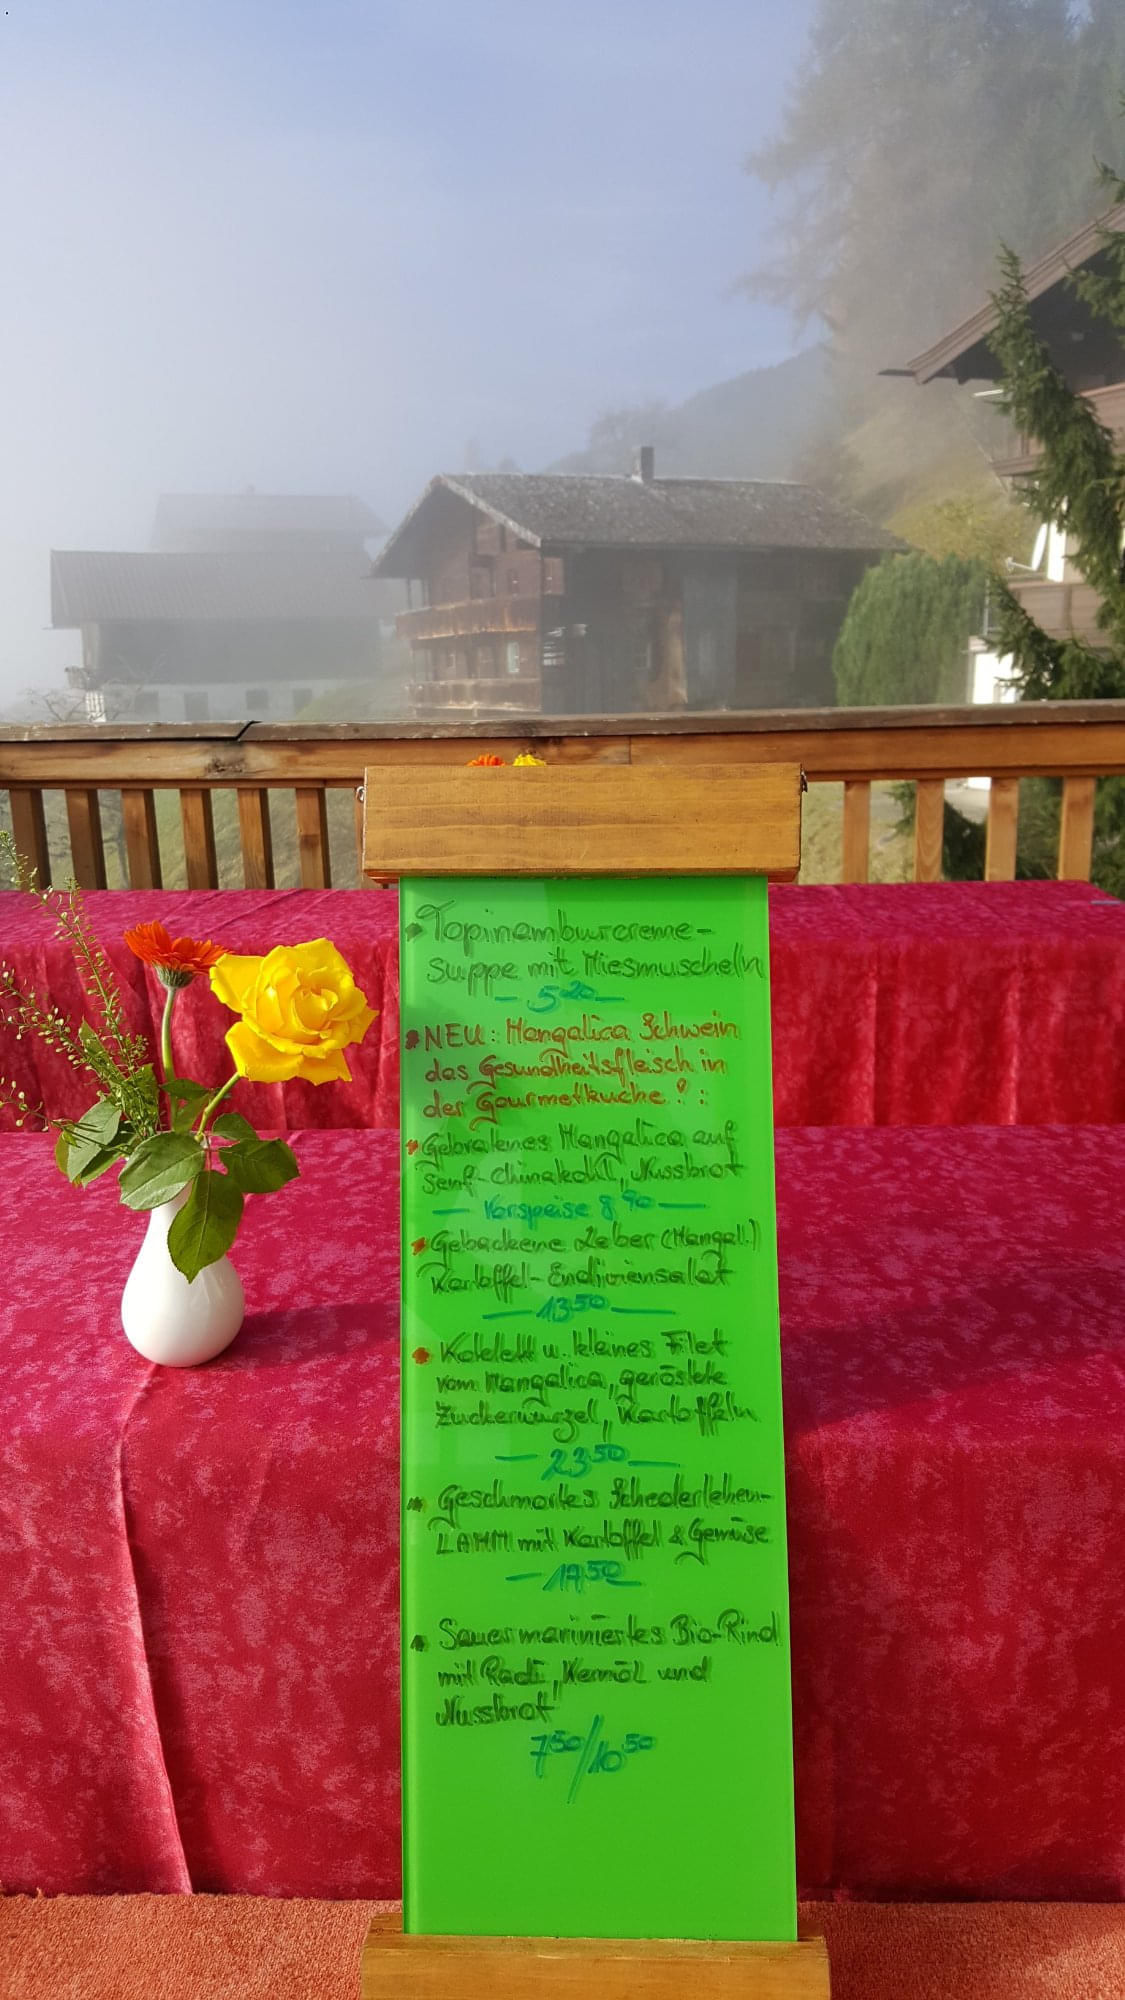 Topinamburcreme-
suppe mit Miesmuscheln
- 5 20 -
NEU: Mangalica Schwein
das Gesundheitsfleisch in
der Gourmetküche ! :
Gebratenes Mangalica auf
Senf-Chinakohl, Nussbrot
- Vorspeise 8 90 -
Gebackene Leber (Mangal.)
Kartoffel-Endiviensalat
- 13 50 -
Kotelett u. kleines Filet
vom Mangalica, geröstete
Zuckerwurzel, Kartoffeln
- 23 50 -
Geschmortes
LAMM mit Kartoffel & Gemüse
Sauer mariniertes Bio-Rind
mit Radi, Kernöl und
Nussbrot
7 50/10 50